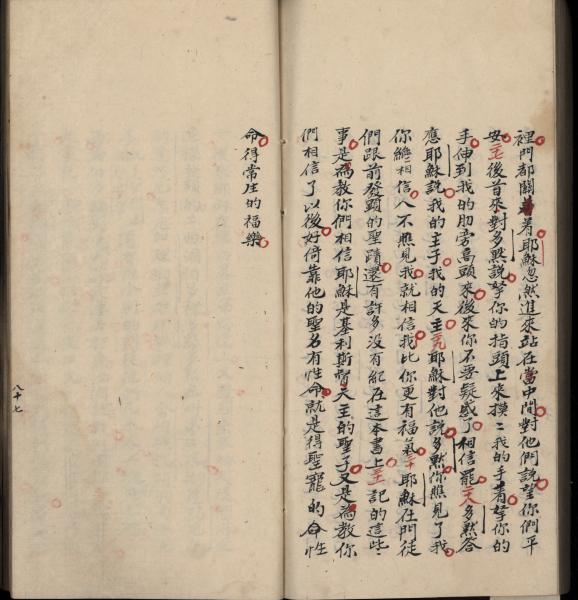 裡門都關着耶穌忽然進來站在當中間對他們說望你們平
安二七後首來對多默說拏你的指頭上來摸〻我的手着拏你的
手伸到我的肋旁頭來後來你不要疑惑了相信罷二八多默答
應耶穌說我的主子我的天主二九耶穌對他說多默你照見了我
你纔相信人不照見我就相信我比你更有福氣三十耶穌在門徒
們跟前發顯的聖蹟還有許多没有紀在這本書上三一記的這些
事是為教你們相信耶穌是基利斯督天主的聖子又是為教你
們相信了以後好倚靠他的聖名有性命就是得聖寵的命性
命得常生的福樂
八十七